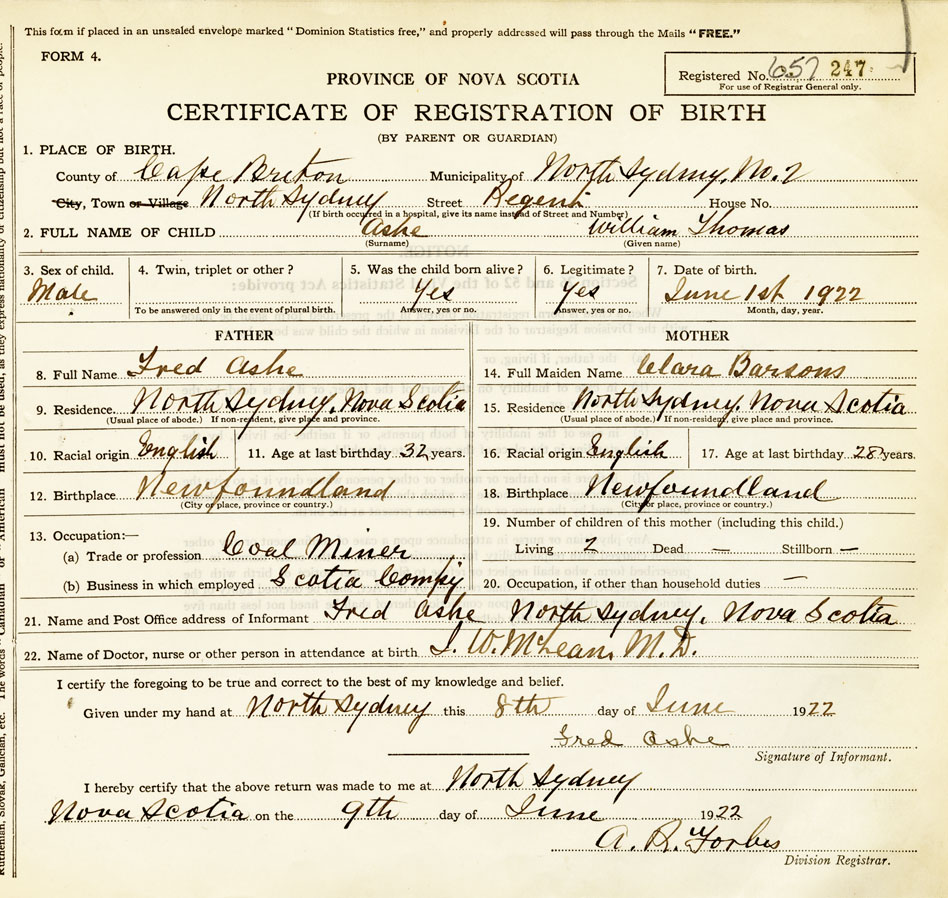 This form if placed in an unsealed envelope marked "Dominion Statistics free," and properly addressed will pass through the Mails "FREE."
FORM 4.
Registered No. 657 247
For use of Registrar General only.
PROVINCE OF NOVA SCOTIA
CERTIFICATE OF REGISTRATION OF BIRTH
(BY PARENT OR GUARDIAN)
1. PLACE OF BIRTH.
County of Cape Breton Municipality of North Sydney, No. 2
City, Town or Village North Sydney Street Regent House No.
(If birth occurred in a hospital, give its name instead of Street and Number)
2. FULL NAME OF CHILD Ashe William Thomas
(Surname) (Given name)
3. Sex of child. 4. Twin, triplet or other? 5. Was the child born alive? 6. Legitimate? 7. Date of birth.
Male Yes Yes June 1st 1922
To be answered only in the event of plural birth. Answer, yes or no. Answer, yes or no. Month, day, year.
FATHER
8. Full Name Fred Ashe
9. Residence North Sydney, Nova Scotia
(Usual place of abode.) If non-resident, give place and province.
10. Racial origin English 11. Age at last birthday 32 years.
12. Birthplace Newfoundland
(City or place, province or country.)
13. Occupation:—
(a) Trade or profession Coal Miner
(b) Business in which employed Scotia Compy
MOTHER
14. Full Maiden Name Clara Barsons
15. Residence North Sydney, Nova Scotia
(Usual place of abode.) If non-resident, give place and province.
16. Racial origin English 17. Age at last birthday 28 years.
18. Birthplace Newfoundland
(City or place, province or country.)
19. Number of children of this mother (including this child.)
Living 2 Dead — Stillborn —
20. Occupation, if other than household duties —
21. Name and Post Office address of Informant Fred Ashe North Sydney, Nova Scotia
22. Name of Doctor, nurse or other person in attendance at birth J. W. McLean, M.D.
I certify the foregoing to be true and correct to the best of my knowledge and belief.
Given under my hand at North Sydney this 8th day of June 1922
Fred Ashe
Signature of Informant.
I hereby certify that the above return was made to me at North Sydney
Nova Scotia on the 9th day of June 1922
A. R. Forbes
Division Registrar.
Ruthenian, Slovak, Galician, etc. The words "Canadian" or "American" must not be used, as they express nationality or citizenship but not a race or people.